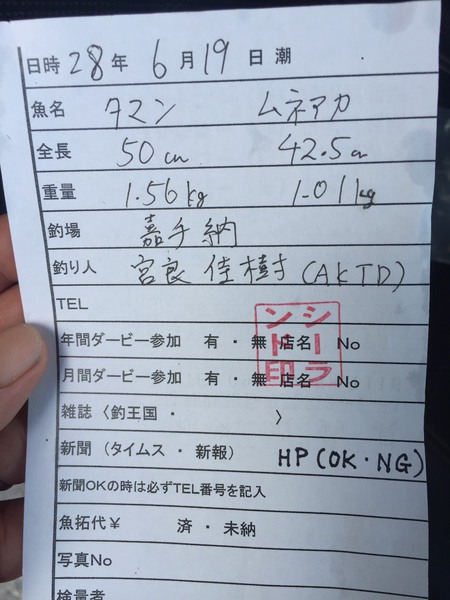 日時 28 年 6 月 19 日 潮
魚名 タマン ムネアカ
全長 50cm 42.5cm
重量 1.56kg 1.011kg
釣場 嘉手納
釣り人 宮良 佳樹 (AKTD)
TEL
年間ダービー参加 有 ・ 無 店名 No
月間ダービー参加 有 ・ 無 店名 No
シーラ
ンド印
雑誌〈釣王国・ 〉
新聞（タイムス ・ 新報） HP(OK・NG)
新聞OKの時は必ずTEL番号を記入
魚拓代￥ 済 ・ 未納
写真No
検量者